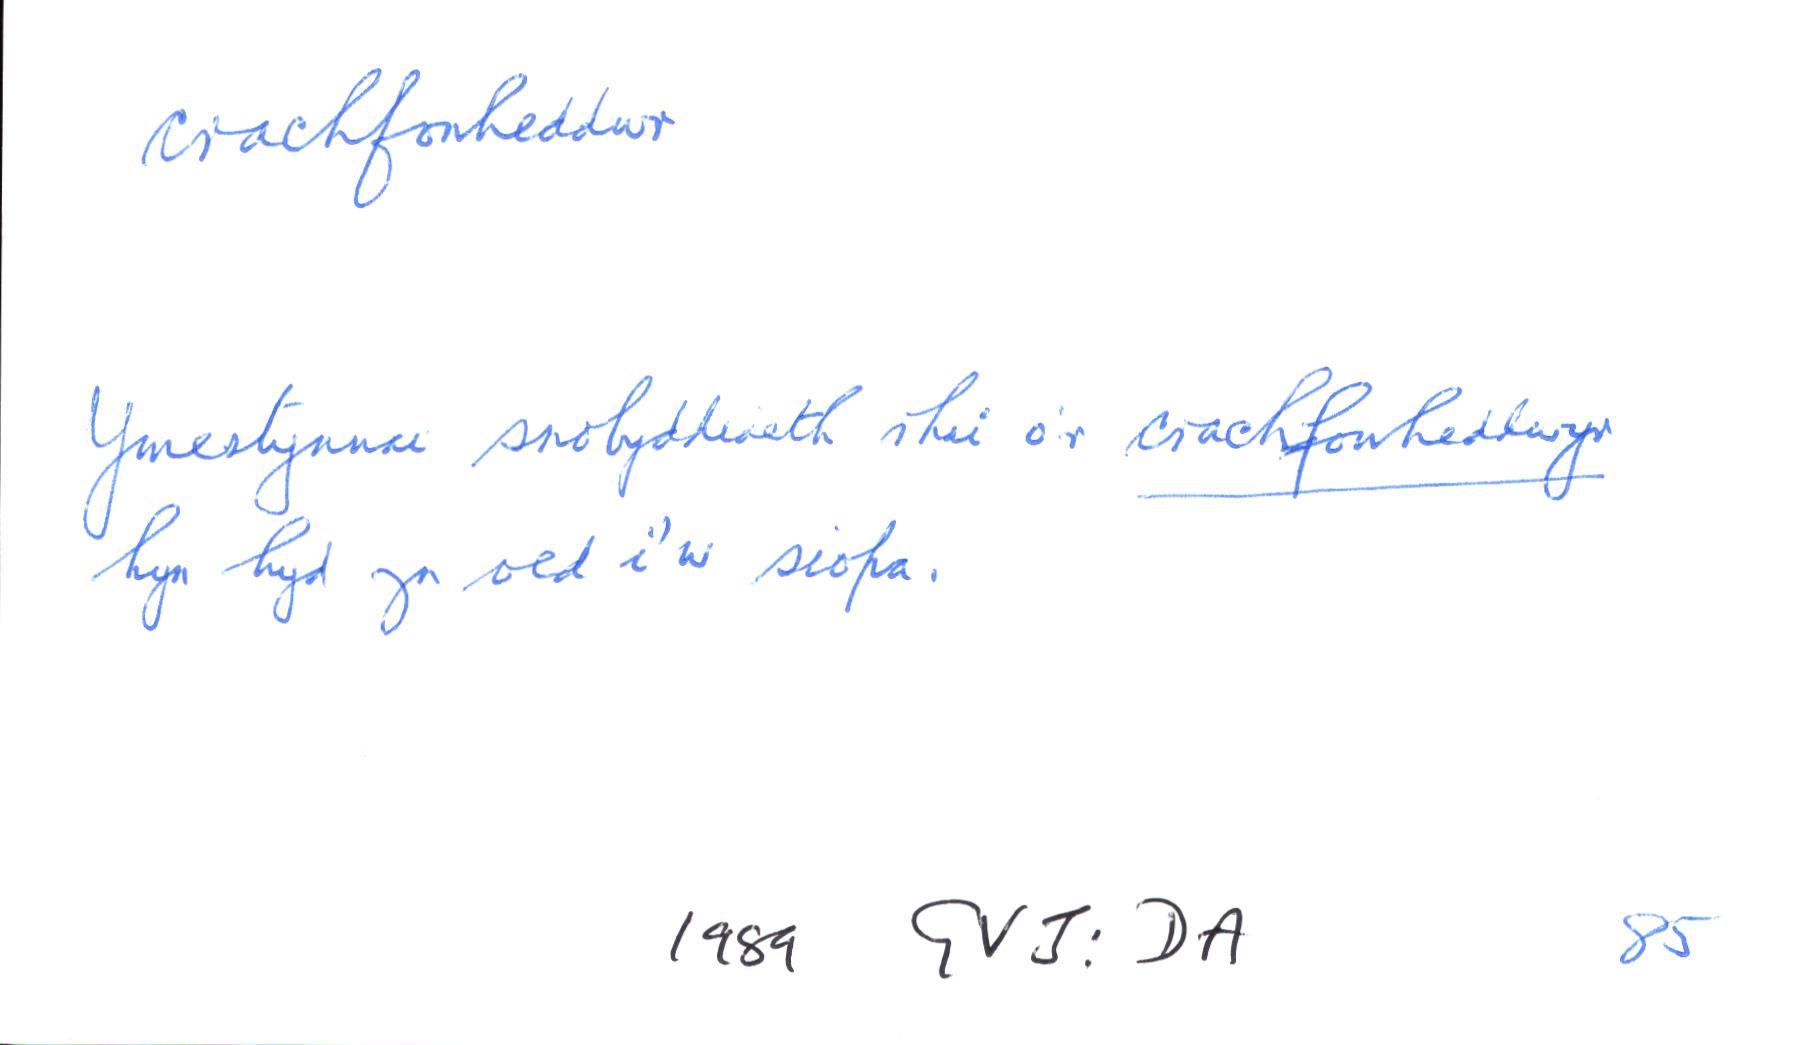 crachfonheddwr
Ymestynnai snobyddiaeth rhai o'r crachfonheddwyr
hyn hyd yn oed i'w siopa.
1989 GVJ: DA 85